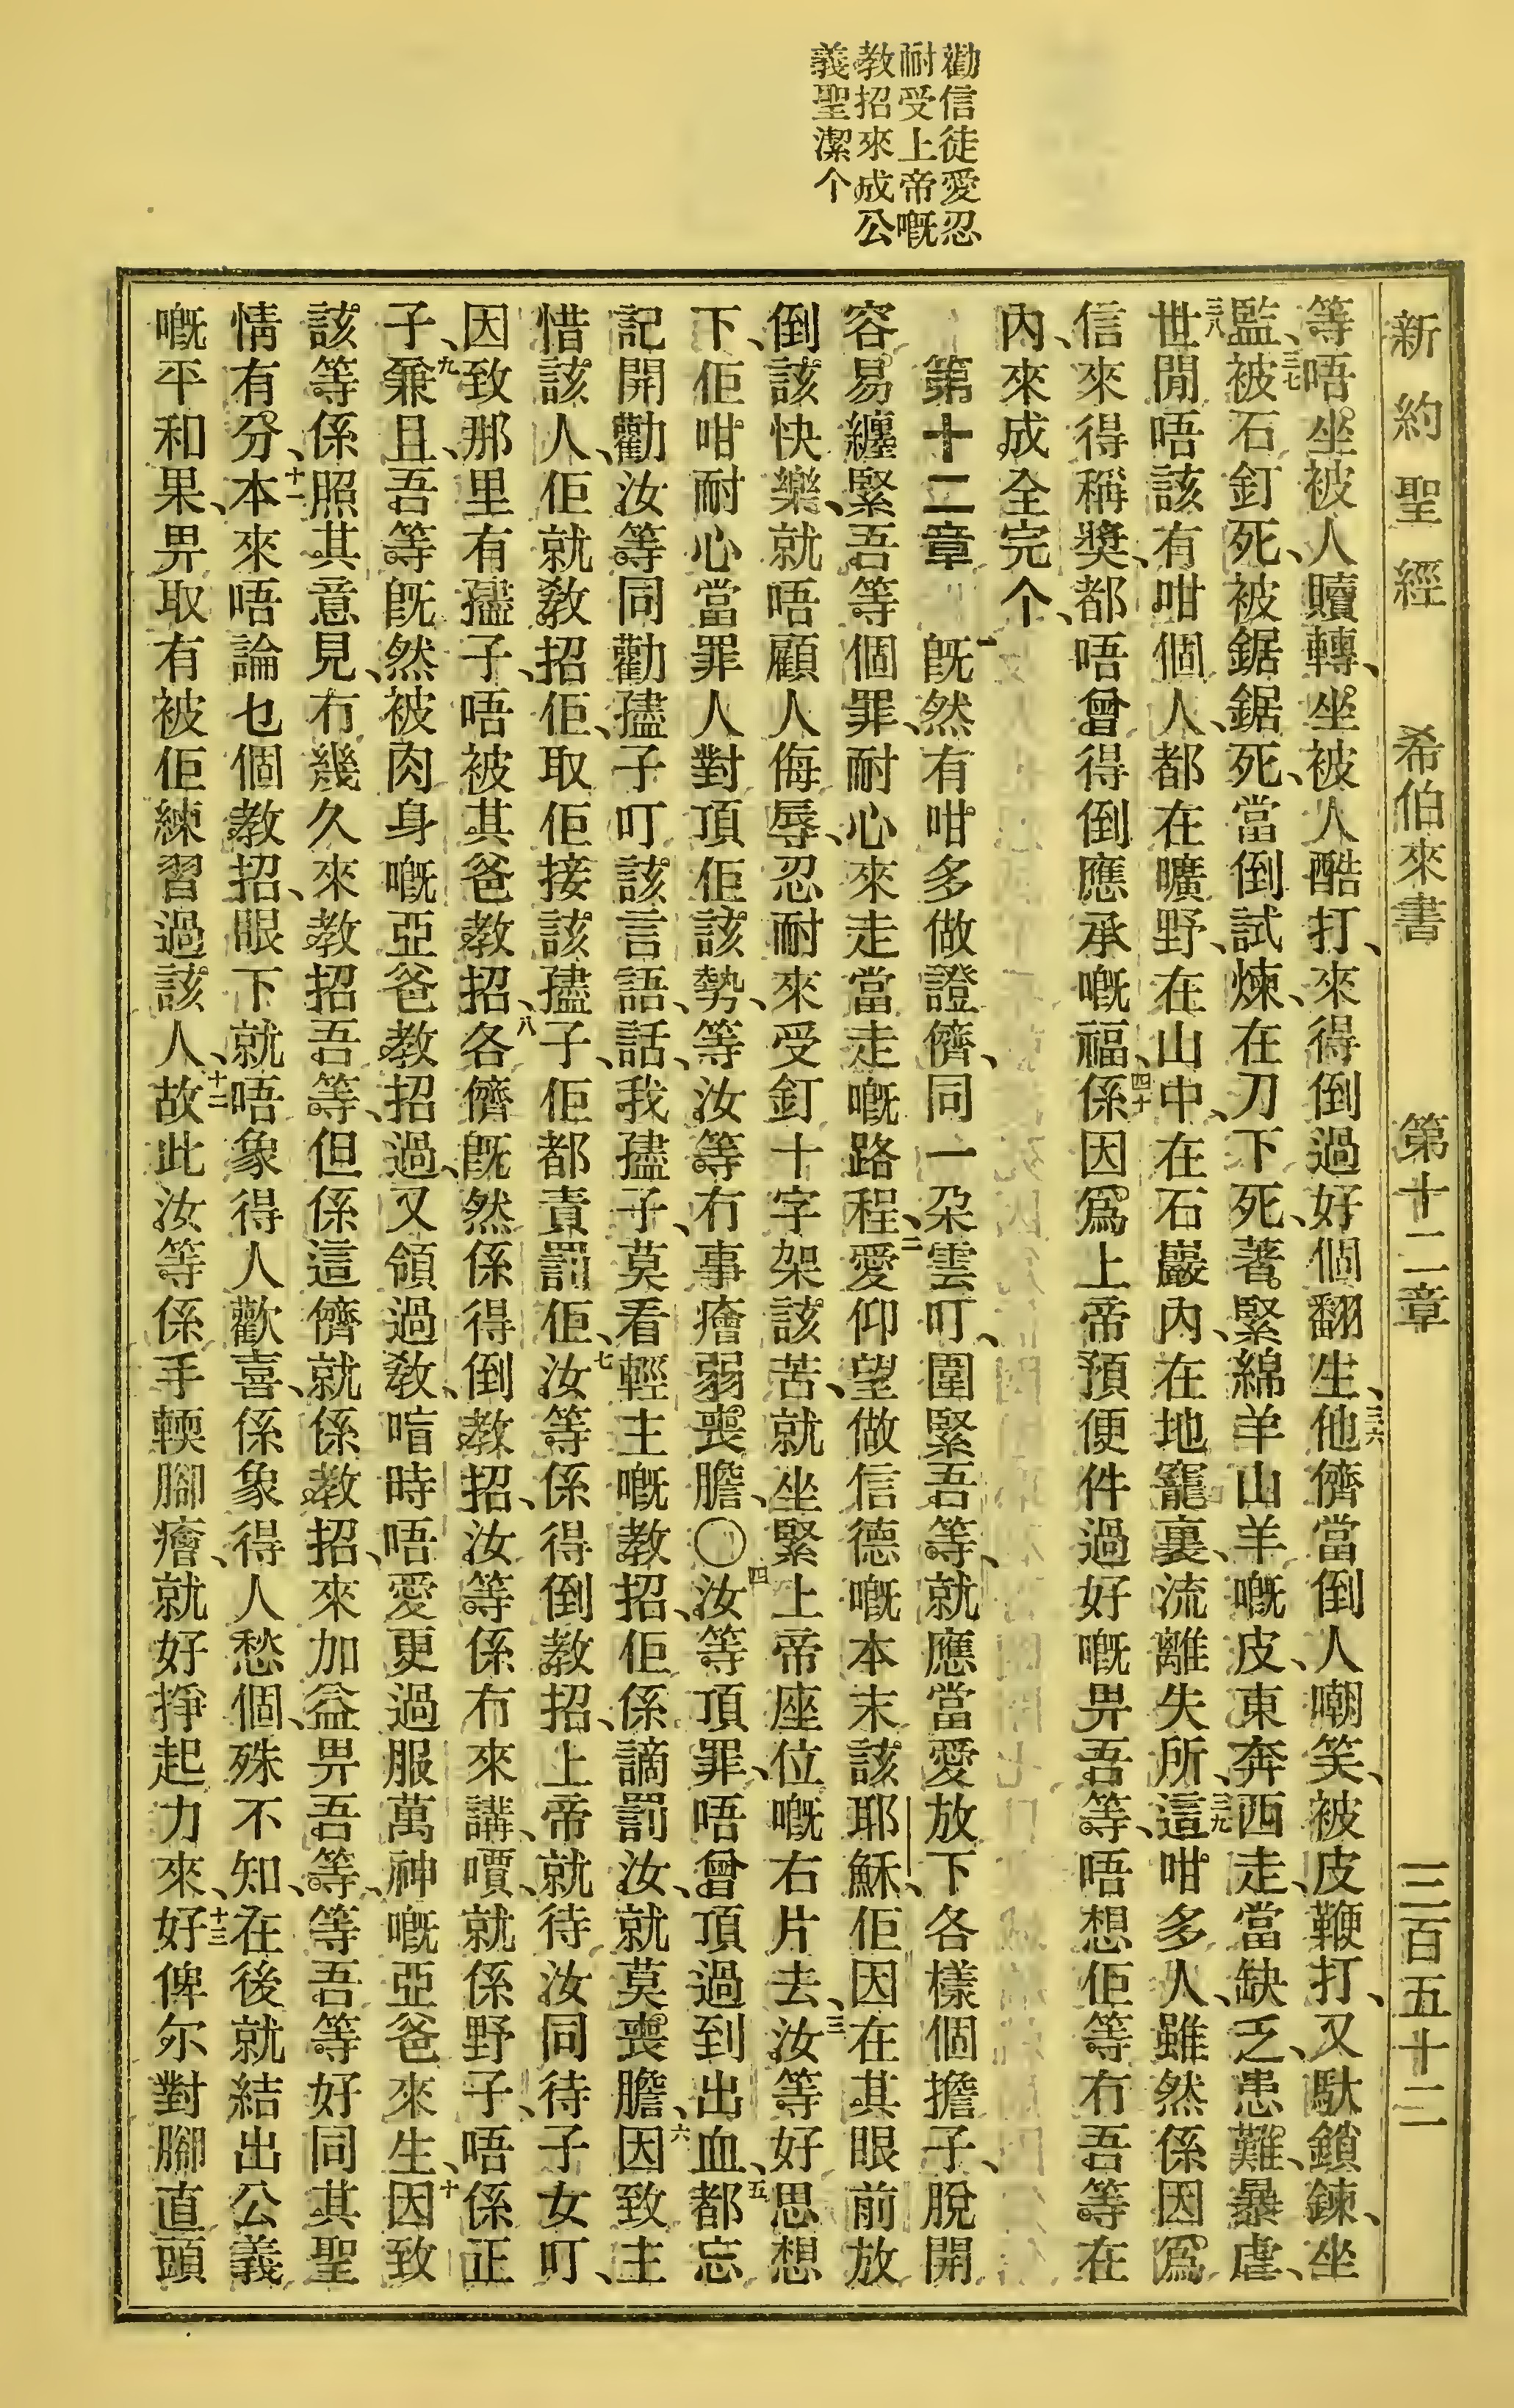 勸信徒愛忍
耐受上帝嘅
教招來成公
義聖潔个
新約聖經　希伯來書　第十二章　三百五十二
等唔坐被人贖轉、坐被人酷打、來得倒過好個翻生、三六他儕當倒人嘲笑、被皮鞭打、又馱鎖鍊、坐
監、三七被石釘死、被鋸鋸死、當倒試煉、在刀下死、著緊綿羊山羊嘅皮、東奔西走、當缺乏、患難、暴虐、
三八世間唔該有咁個人、都在曠野、在山中、在石巖內、在地窿裏、流離失所、三九這咁多人、雖然係因爲
信來得稱獎、都唔曾得倒應承嘅福、四十係因爲上帝預便件過好嘅畀吾等、唔想佢等冇吾等在
內、來成全完个、
第十二章　一既然有咁多做證儕、同一朶雲叮、圍緊吾等、就應當愛放下各樣個擔子、脫開
容易纏緊吾等個罪、耐心來走當走嘅路程、二愛仰望做信德嘅本末該耶穌、佢因在其眼前放
倒該快樂、就唔顧人侮辱、忍耐來受釘十字架該苦、就坐緊上帝座位嘅右片去、三汝等好思想
下、佢咁耐心當罪人對頂佢該勢、等汝等冇事癐弱喪膽、〇四汝等頂罪、唔曾頂過到出血、五都忘
記開勸汝等同勸孻子叮該言語、話、我孻子、莫看輕主嘅教招、佢係謫罰汝、就莫喪膽、六因致主
惜該人、佢就教招佢、取佢接該孻子、佢都責罰佢、七汝等係得倒教招、上帝就待汝同待子女叮、
因致那里有孻子、唔被其爸教招、八各儕既然係得倒教招、汝等係冇來講、嘪、就係野子、唔係正
子、九兼且、吾等既然被肉身嘅亞爸教招過、又領過教、喑時唔愛更過服萬神嘅亞爸來生、十因致
該等係照其意見、冇幾久來教招吾等、但係這儕就係教招、來加益畀吾等、等吾等好同其聖
情有分、十一本來唔論乜個教招、眼下就唔象得人歡喜、係象得人愁個、殊不知、在後就結出公義
嘅平和果、畀取有被佢練習過該人、十二故此汝等係手輭腳癐、就好掙起力來、十三好俾尔對腳直頭